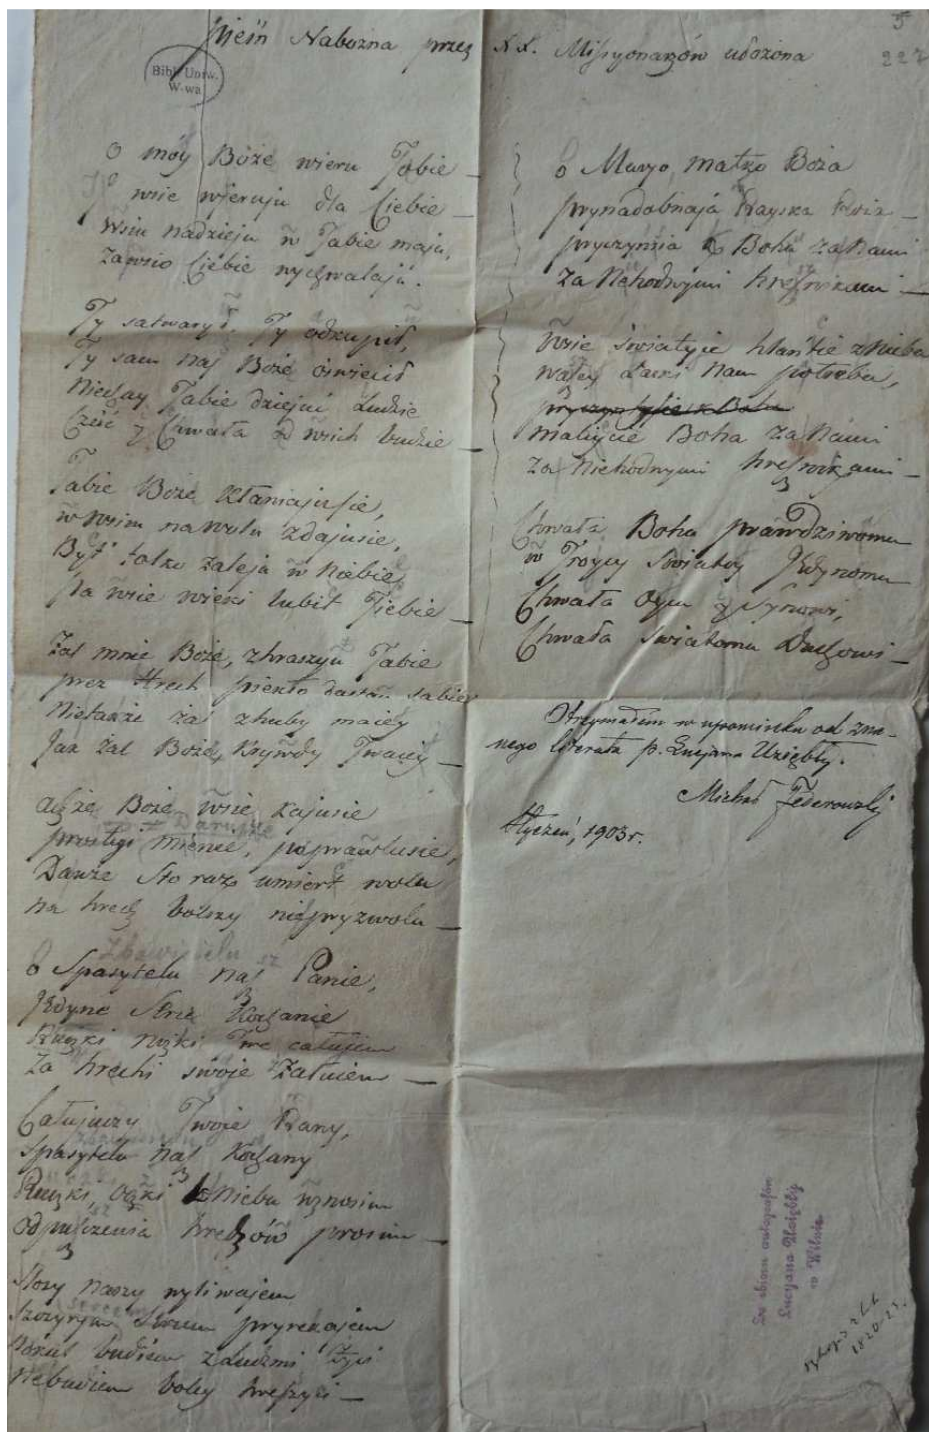 Pieśń Nabożna przez X.X. Missyonarzów ułożona
5
227
Bibl. Uniw.
W-wa
O móy Boże wieru Tabie
wsie wieruju dla Ciebie
Wsiu nadzieju w Tabie maju,
Zawsio Ciebie wychwalaju.
Ty satwarył, Ty odkupił,
Ty sam nas Boże oświecił
Niechay Tabie dziejuć Ludzie
Cześć y Chwała od wsich budzie
Tabie Boże kłaniajusie,
w wsim na wolu zdajusie,
Być tolko zaleja w Niebie,
Na wsie wieki lubit Ciebie
Żal mnie Boże, zhraszyu Tabie
prez Hrech piekło sabie
Nietakże żal zhuby majey
Jak żal Boże, Krywdy Twajey
Boże wsie kajusie
Daruyże
mienie, poprawlusie,
Sto raz umiert wolu
na hrech bolszy niepryzwolu
Zbawicielu
O Spasytelu nasz Panie,
Jedyne Kochanie
Ruczki nożki Twe całujem
Za hrechi swoje żałuiem
Całujuczy Twoje Rany,
Spasytelu nasz Kochany
Ruczki oczki k Niebu wznosim
Odpuszczenia hrechów prosim
Slozy naszy wyliwajem
Szczyrym sercem pryrekajem
Pokul budiem z Ludzmi żyć
Niebudiem boley hreszyći
O Maryo, matko Boża
prynadobnaja Rayska Roża
pryczynisia k Bohu za Nami
Za Niehodnymi hresznikami
Wsie światyie hlańcie z Nieba
Łaski Nam potreba,
pryczynsytie k Bohu
malicie Boha za Nami
Za Niehodnymi hresznikami
Chwała Bohu prawdziwomu
w Troycy Swiatoy Jedynomu
Chwała Oycu y Synowi,
Chwała Swiatomu Duchowi
Otrzymałem w upominku od zna-
nego literata p. Lucjana Uziębły.
Michał Federowski
Styczeń, 1903 r.
Ze zbioru autografów
Lucyana Uziębły
w Wilnie
1820-25.